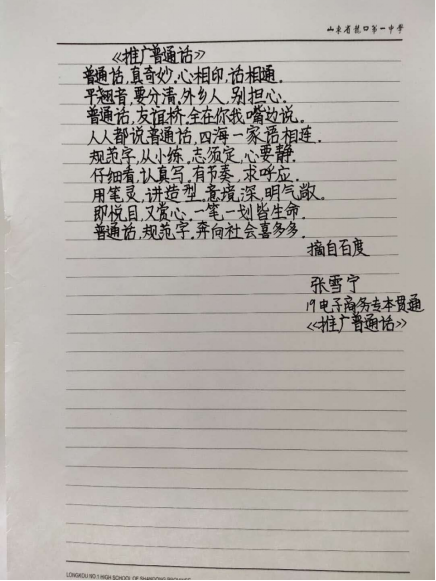 山东省龙口第一中学
《推广普通话》
普通话,真奇妙,心相印,话相通.
平翘音,要分清,外乡人,别担心.
普通话,友谊桥,全在你我嘴边说.
人人都说普通话,四海一家语相连.
规范字,从小练.志须定,心要静.
仔细看,认真写.有节奏,求呼应.
用笔灵,讲造型.意境深,明气敞.
即悦目,又赏心,一笔一划皆生命.
普通话,规范字.奔向社会喜多多.
摘自百度
张雪宁
19电子商务专本贯通
《推广普通话》
LONGKOU NO.1 HIGH SCHOOL OF SHANDONG PROVINCE